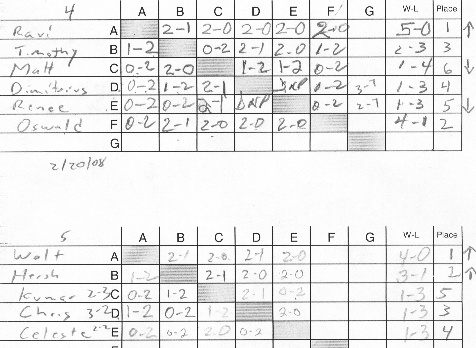 4 A B C D E F G W-L Place
Ravi A 2-1 2-0 2-0 2-0 2-0 5-0 1 ↑
Timothy B 1-2 0-2 2-1 2-0 1-2 2-3 3
Matt C 0-2 2-0 1-2 1-2 0-2 1-4 6 ↓
Dimitrius D 0-2 1-2 2-1 DNP 0-2 1-3 4
Renee E 0-2 0-2 2-1 DNP 0-2 1-3 5 ↓
Oswald F 0-2 2-1 2-0 2-0 2-0 4-1 2
G
2/20/08
5 A B C D E F G W-L Place
Walt A 2-1 2-0 2-1 2-0 4-0 1 ↑
Hersh B 1-2 2-1 2-0 2-0 3-1 2 ↑
Kumar 2-3 C 0-2 1-2 2-1 0-2 1-3 5
Chris 3-2 D 1-2 0-2 1-2 2-0 1-3 3
Celeste 2-2 E 0-2 0-2 2-0 0-2 1-3 4